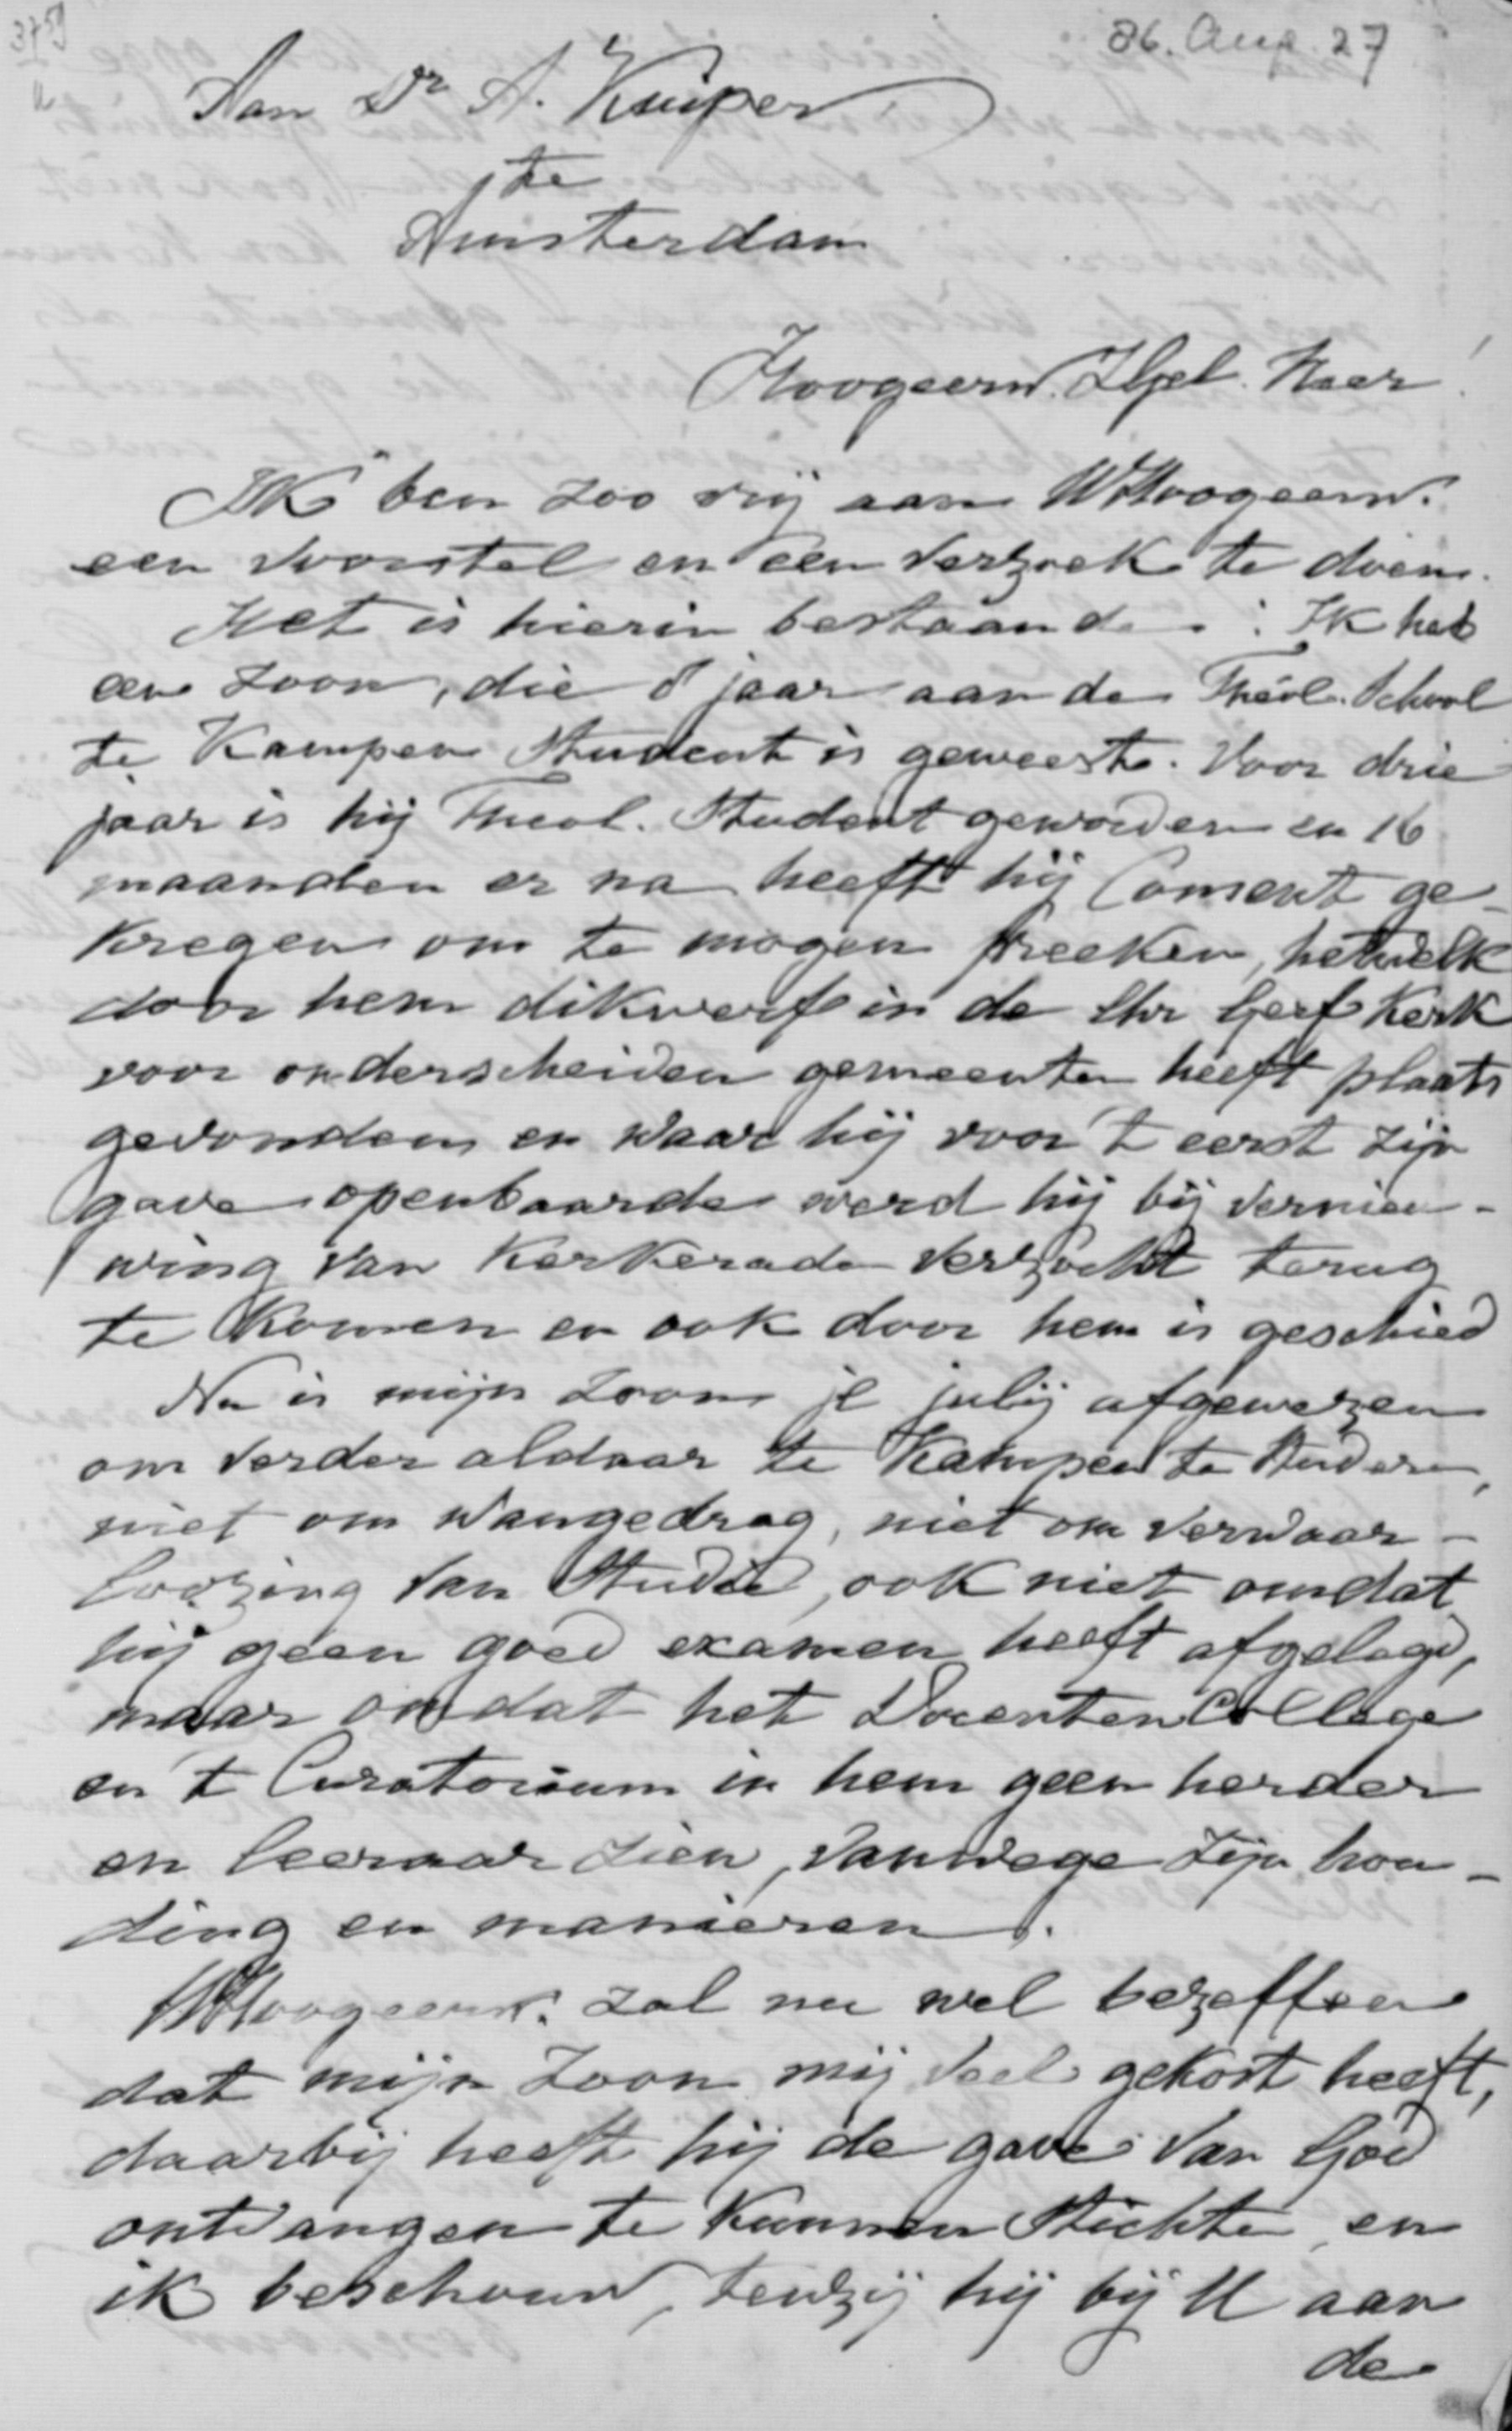 86. Aug. 27
Aan Dr A. Kuiper
te
Amsterdam
Hoogeerw. ZHgel. Heer
Ik ben zoo vrij aan UHoogeerw.
een voorstel en een verzoek te doen.
Het is hierin bestaande: Ik heb
een zoon, die 8 jaar aan de Theol. School
te Kampen Student is geweest. Voor drie
jaar is hij Theol. Student geworden en 16
maanden er na heeft hij Consent ge-
kregen om te mogen preeken, hetwelk
door hem dikwerf in de Chr Geref Kerk
voor onderscheiden gemeenten heeft plaats
gevonden en waar hij voor 't eerst zijn
gave openbaarde werd hij bij vernieu-
wing van Kerkerade verzocht terug
te komen en ook door hem is geschied
Nu is mijn zoon jl julij afgewezen
om verder aldaar te Kampen te studeren,
niet om wangedrag, niet om verwaar-
loozing van Studie, ook niet omdat
hij geen goed examen heeft afgelegd,
maar omdat het Docenten College
en 't Curatorium in hem geen herder
en leeraar zien, vanwege zijn hou-
ding en manieren.
UHoogeerw. zal nu wel bezeffen
dat mijn zoon mij veel gekost heeft,
daarbij heeft hij de gave van God
ontvangen te kunnen Stichten, en
ik beschouw, tenzij hij bij U aan
de